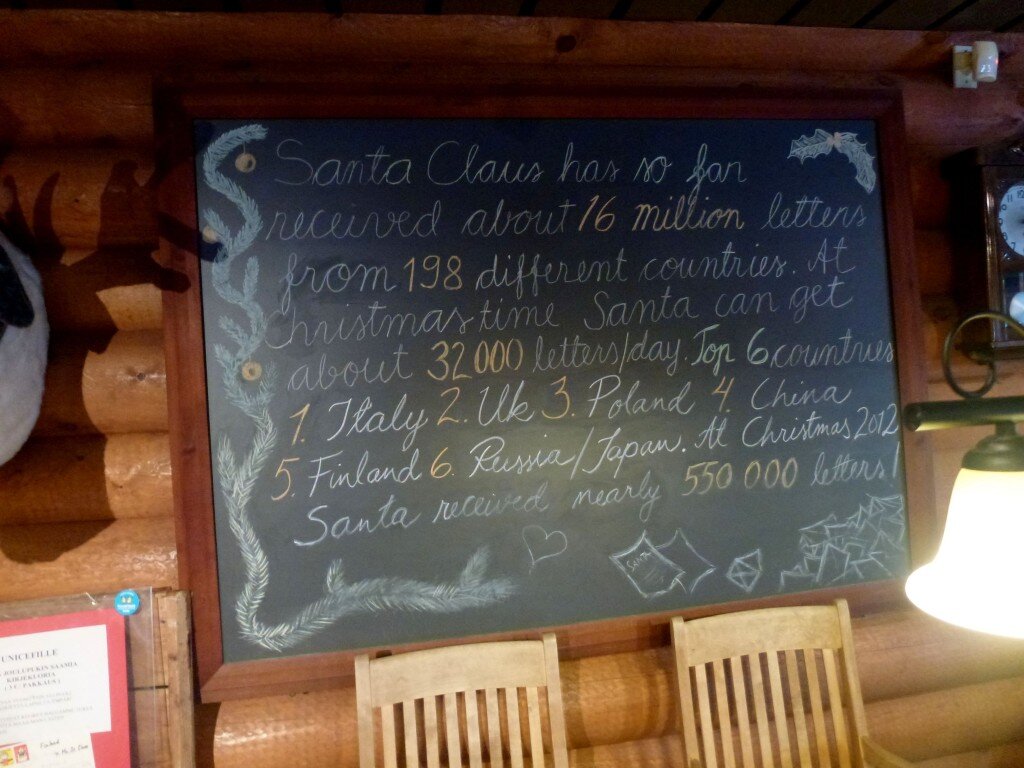 Santa Claus has so far
received about 16 million letters
from 198 different countries. At
Christmas time Santa can get
about 32 000 letters/day. Top 6 countries
1. Italy 2. Uk 3. Poland 4. China
5. Finland 6. Russia/Japan. At Christmas 2012
Santa received nearly 550 000 letters!
Santa
UNICEFILLE
JOULUPUKIN SAAMIA
KIRJEKUORIA
PAKKAUS
Finland